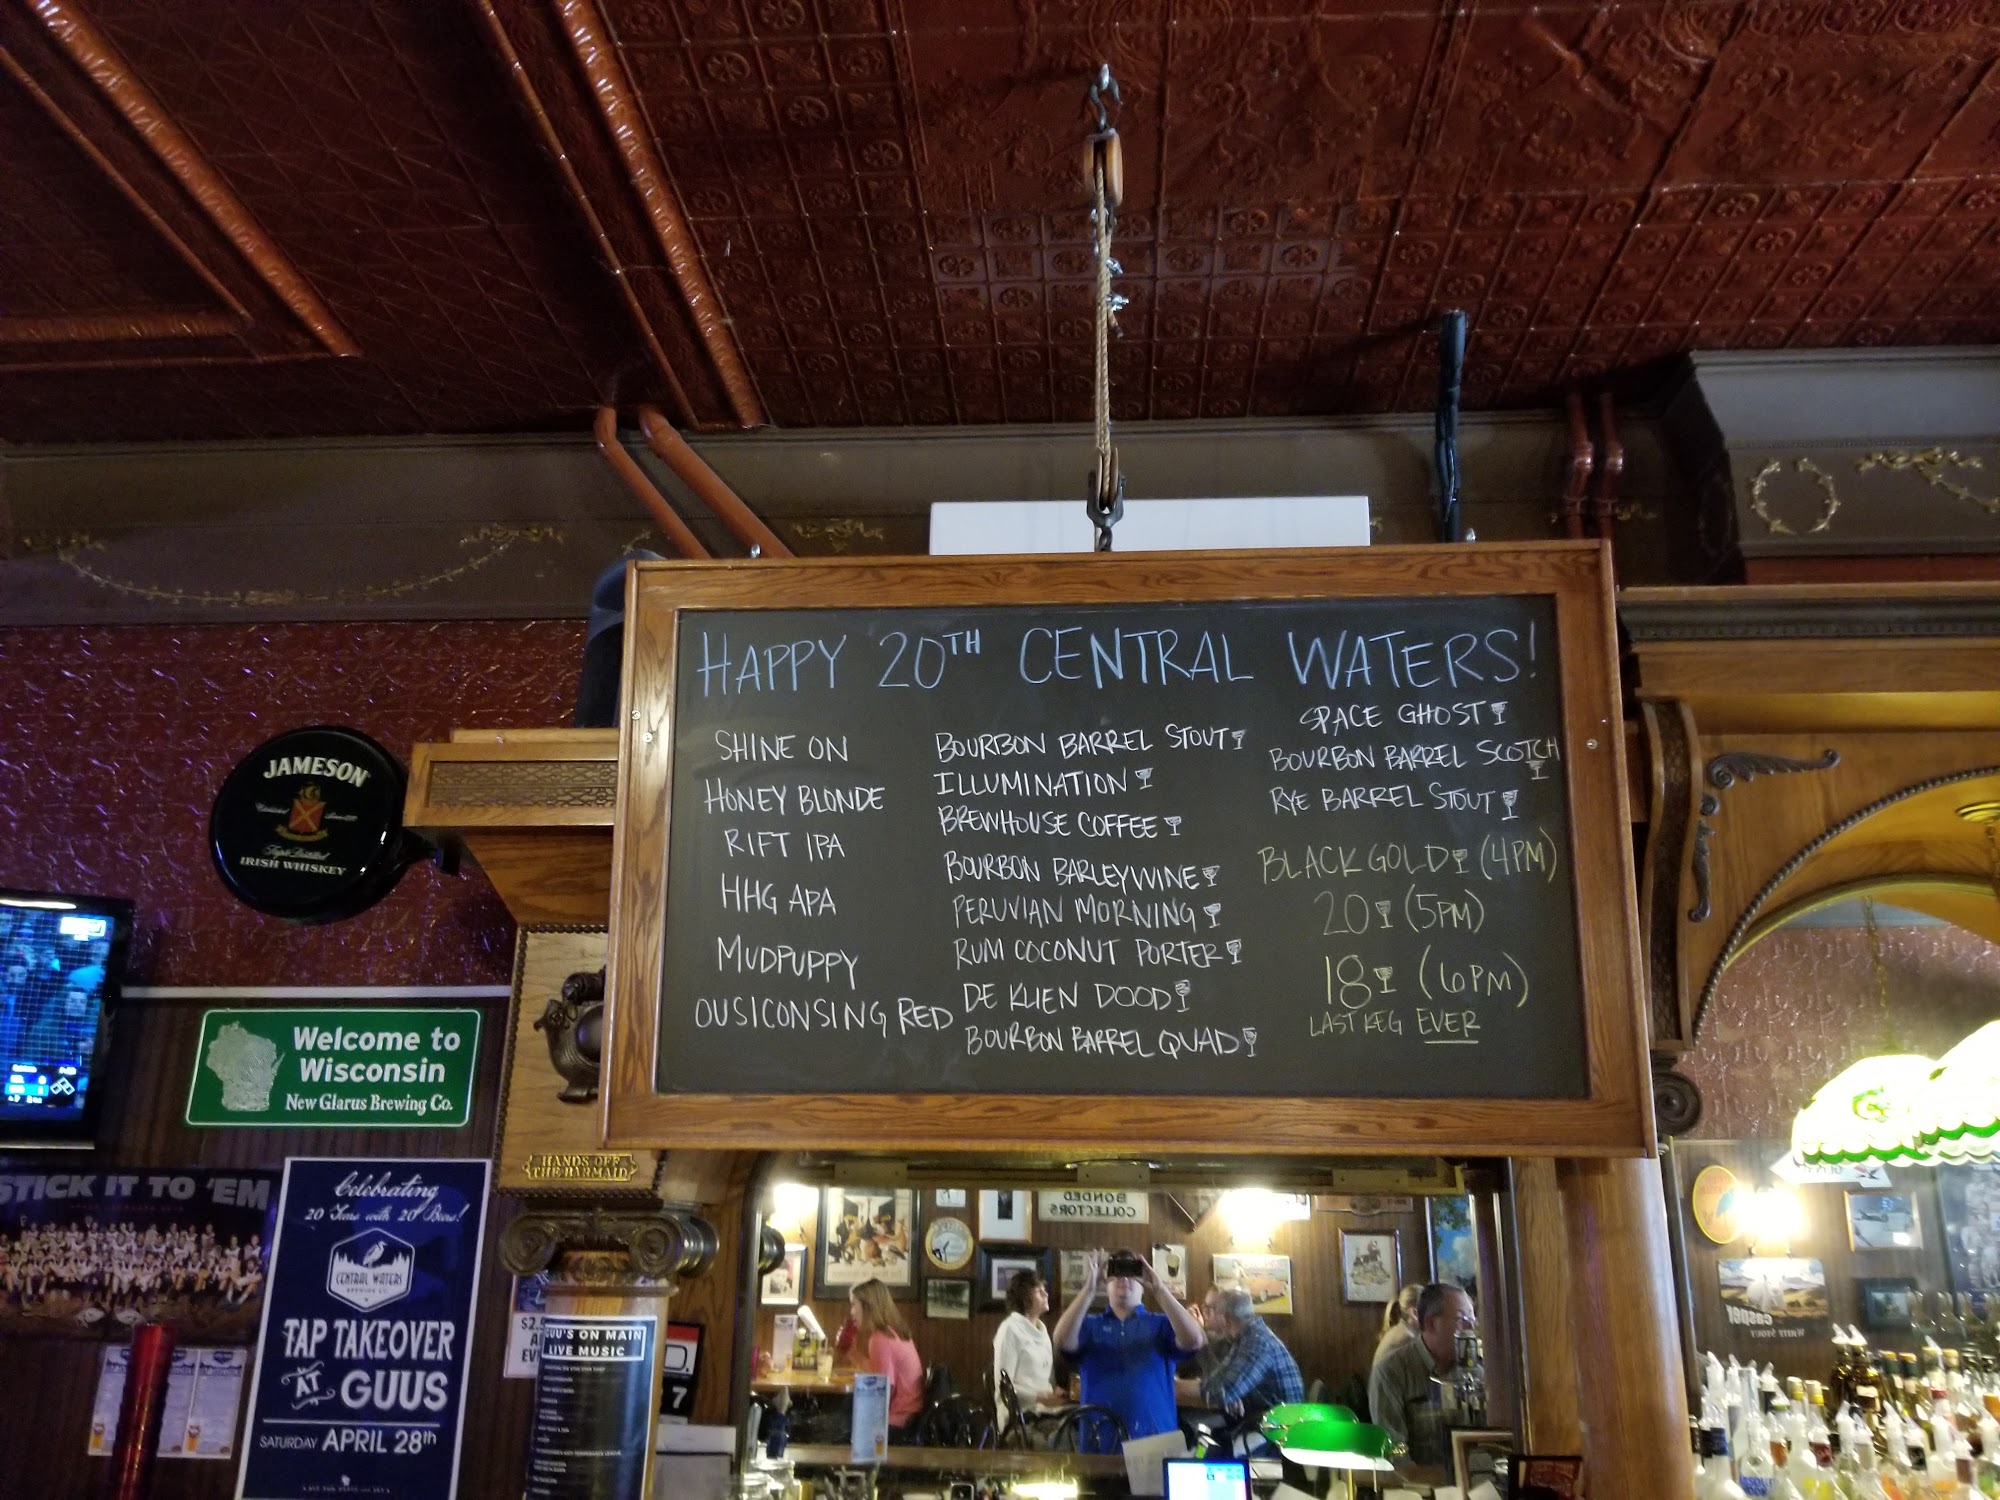 HAPPY 20TH CENTRAL WATERS!
SHINE ON
HONEY BLONDE
RIFT IPA
HHG APA
MUDPUPPY
OUSICONSING RED
BOURBON BARREL STOUT
ILLUMINATION
BREWHOUSE COFFEE
BOURBON BARLEYWINE
PERUVIAN MORNING
RUM COCONUT PORTER
DE KLIEN DOOD
BOURBON BARREL QUAD
SPACE GHOST
BOURBON BARREL SCOTCH
RYE BARREL STOUT
BLACK GOLD (4PM)
20 (5PM)
18 (6PM)
LAST KEG EVER
JAMESON
Triple Distilled
IRISH WHISKEY
Welcome to
Wisconsin
New Glarus Brewing Co.
HANDS OFF
THE BARMAID
STICK IT TO 'EM
Celebrating
20 Years with 20 Beers!
CENTRAL WATERS
BREWING CO.
TAP TAKEOVER
AT GUUS
SATURDAY APRIL 28th
GUU'S ON MAIN
LIVE MUSIC
7
BONDED
COLLECTORS
casper
WHITE STOUT